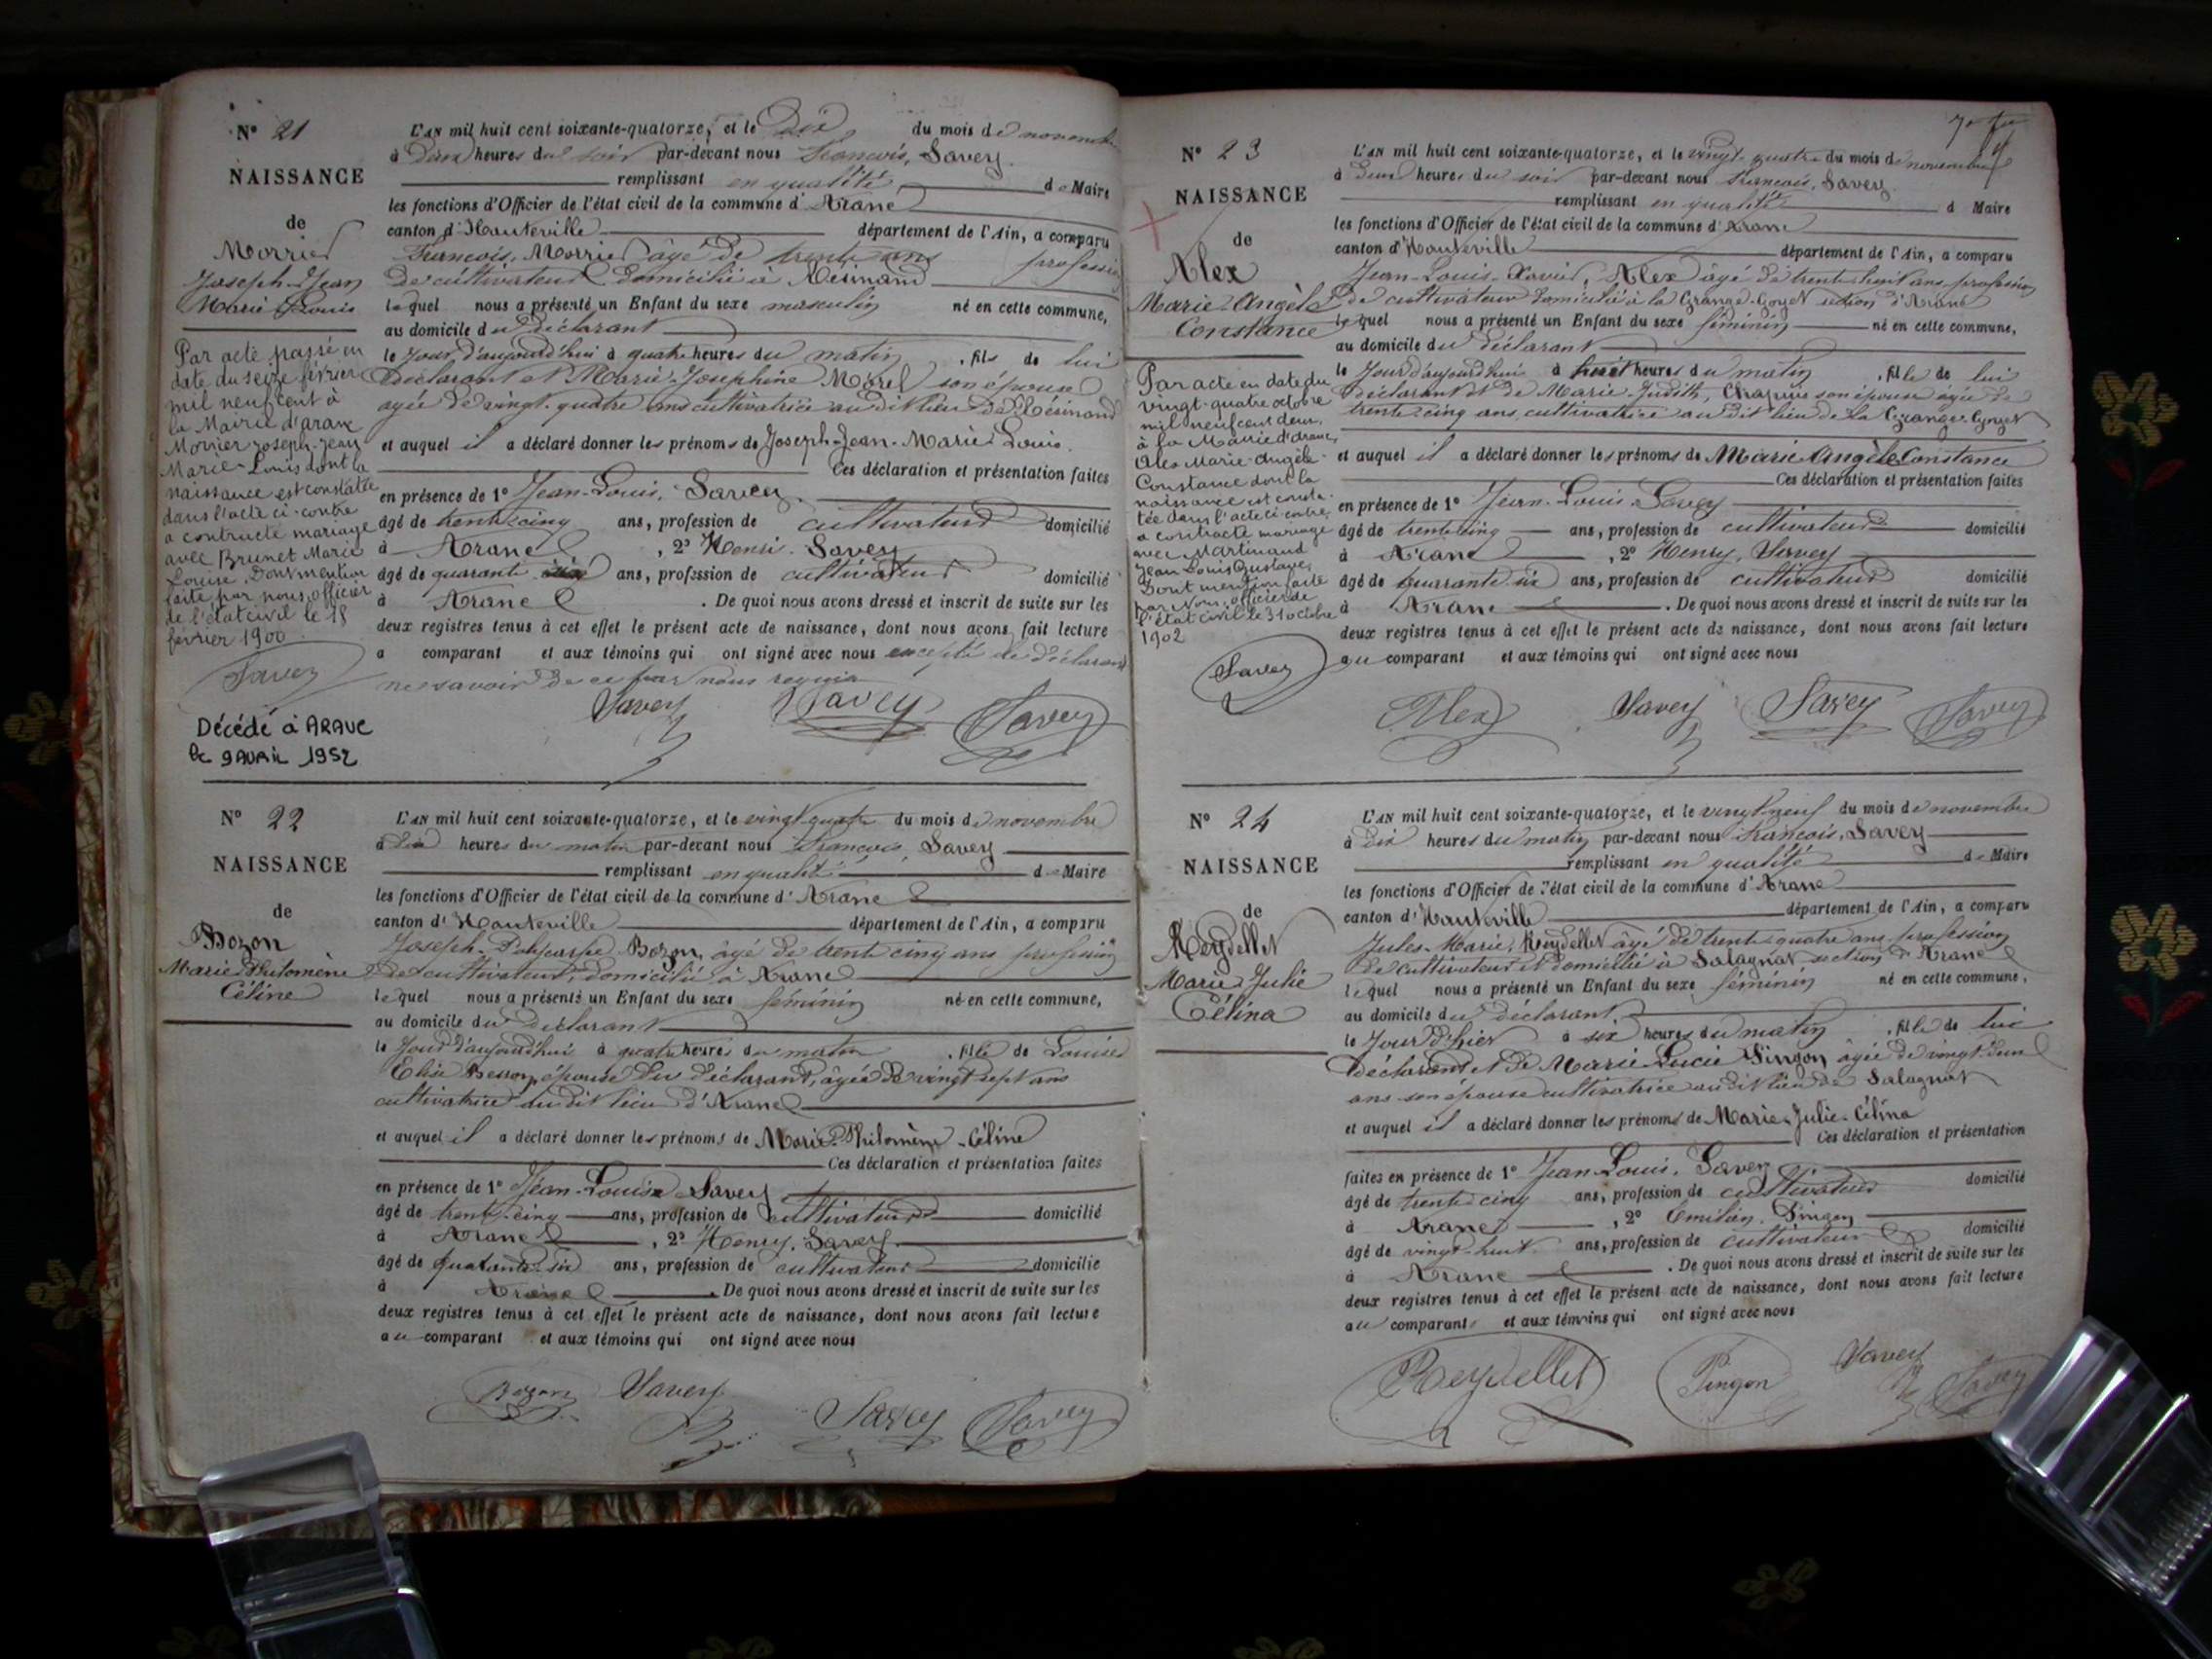 N° 21
NAISSANCE
de
Morrier
Joseph-Jean
Marie Louis
Par acte passé en
date du seize février
mil neuf cent à
la Mairie d'arane
Morrier Joseph-Jean
Marie-Louis dont la
naissance est constatée
dans l'acte ci-contre
a contracté mariage
avec Brunet Marie
Louise, Dont mention
faite par nous officier
de l'état civil le 18
février 1900
Savey
Décédé à ARANC
le 9 AVRIL 1952
L'AN mil huit cent soixante-quatorze, et le Dix du mois de novembre
à Deux heures du soir par-devant nous François, Savey
remplissant en qualité de Maire
les fonctions d'Officier de l'état civil de la commune d'Aranc
canton d'Hauteville département de l'Ain, a comparu
François, Morrier âgé de trente ans profession
de cultivateur domicilié à Résinand
lequel nous a présenté un Enfant du sexe masculin né en cette commune,
au domicile du déclarant
le Jour d'aujourd'hui à quatre heures du matin, fils de lui
déclarant et Marie-Josephine Morel son épouse
agée de vingt-quatre ans cultivatrice au dit lieu de Résinand
et auquel il a déclaré donner les prénoms de Joseph-Jean-Marie-Louis.
Ces déclaration et présentation faites
en présence de 1° Jean-Louis, Savey
âgé de trente cinq ans, profession de cultivateur domicilié
à Aranc, 2° Henri. Savey
âgé de quarante six ans, profession de cultivateur domicilié
à Aranc. De quoi nous avons dressé et inscrit de suite sur les
deux registres tenus à cet effet le présent acte de naissance, dont nous avons fait lecture
a comparant et aux témoins qui ont signé avec nous excepté le déclarant
ne savoir de ce par nous requis
Savey Savey Savey
N° 22
NAISSANCE
de
Bozon
Marie Philomène
Céline
L'AN mil huit cent soixante-quatorze, et le vingt-quatre du mois de novembre
à dix heures du matin par-devant nous François, Savey
remplissant en qualité de Maire
les fonctions d'Officier de l'état civil de la commune d'Aranc
canton d'Hauteville département de l'Ain, a comparu
Joseph-Polycarpe Bozon, âgé de trente cinq ans profession
de cultivateur, domicilié à Aranc
lequel nous a présenté un Enfant du sexe féminin né en cette commune,
au domicile du déclarant
le Jour d'aujourd'hui à quatre heures du matin, fille de Louise
Elise Besson, épouse du déclarant, âgée de vingt sept ans
cultivatrice au dit lieu d'Aranc
et auquel il a déclaré donner les prénoms de Marie-Philomène-Céline
Ces déclaration et présentation faites
en présence de 1° Jean-Louis Savey
âgé de trente-cinq ans, profession de cultivateur domicilié
à Aranc, 2° Henry, Savey
âgé de quarante-six ans, profession de cultivateur domicilié
à Aranc. De quoi nous avons dressé et inscrit de suite sur les
deux registres tenus à cet effet le présent acte de naissance, dont nous avons fait lecture
au comparant et aux témoins qui ont signé avec nous
Bozon Savey Savey Savey
N° 23
NAISSANCE
de
Alex
Marie-Angèle
Constance
Par acte en date du
vingt-quatre octobre
mil neuf cent deux,
à la Mairie d'Aranc,
Alex Marie-Angèle-
Constance dont la
naissance est consta-
tée dans l'acte ci contre,
a contracté mariage
avec Martinand
Jean Louis Gustave,
Dont mention faite
par Nous, officier de
l'état civil le 31 octobre
1902
Savey
L'AN mil huit cent soixante-quatorze, et le vingt-quatre du mois de novembre
à Deux heures du soir par-devant nous François, Savey
remplissant en qualité d Maire
les fonctions d'Officier de l'état civil de la commune d'Aranc
canton d'Hauteville département de l'Ain, a comparu
Jean-Louis-Xavier, Alex âgé de trente huit ans, profession
de cultivateur domicilié à la Grange-Goyet section d'Aranc
lequel nous a présenté un Enfant du sexe féminin né en cette commune,
au domicile du déclarant
le Jour d'aujourd'hui à huit heures du matin, fille de lui
déclarant et de Marie-Judith, Chapuis son épouse âgée de
trente cinq ans, cultivatrice au dit lieu de la Grange-Goyet
et auquel il a déclaré donner les prénoms de Marie Angèle Constance
Ces déclaration et présentation faites
en présence de 1° Jean-Louis Savey
âgé de trente-cinq ans, profession de cultivateur domicilié
à Aranc, 2° Henry, Savey
âgé de quarante-six ans, profession de cultivateur domicilié
à Aranc. De quoi nous avons dressé et inscrit de suite sur les
deux registres tenus à cet effet le présent acte de naissance, dont nous avons fait lecture
au comparant et aux témoins qui ont signé avec nous
Alex Savey Savey Savey
N° 24
NAISSANCE
de
Reydellet
Marie Julie
Célina
L'AN mil huit cent soixante-quatorze, et le vingt-neuf du mois de novembre
à Dix heures du matin par-devant nous François, Savey
remplissant en qualité de Maire
les fonctions d'Officier de l'état civil de la commune d'Aranc
canton d'Hauteville département de l'Ain, a comparu
Jules-Marie, Reydellet âgé de trente-quatre ans, profession
de cultivateur et domicilié à Salagnat section d'Aranc
lequel nous a présenté un Enfant du sexe féminin né en cette commune,
au domicile du déclarant
le Jour d'hier à six heures du matin, fille de lui
déclarant et de Marie Lucie Pingon âgée de vingt-d'un
ans son épouse cultivatrice au dit lieu de Salagnat
et auquel il a déclaré donner les prénoms de Marie-Julie-Célina
Ces déclaration et présentation
faites en présence de 1° Jean-Louis, Savey
âgé de trente cinq ans, profession de cultivateur domicilié
à Aranc, 2° Emilien, Pingon
âgé de vingt-huit ans, profession de cultivateur domicilié
à Aranc. De quoi nous avons dressé et inscrit de suite sur les
deux registres tenus à cet effet le présent acte de naissance, dont nous avons fait lecture
au comparant et aux témoins qui ont signé avec nous
Reydellet Pingon Savey Savey